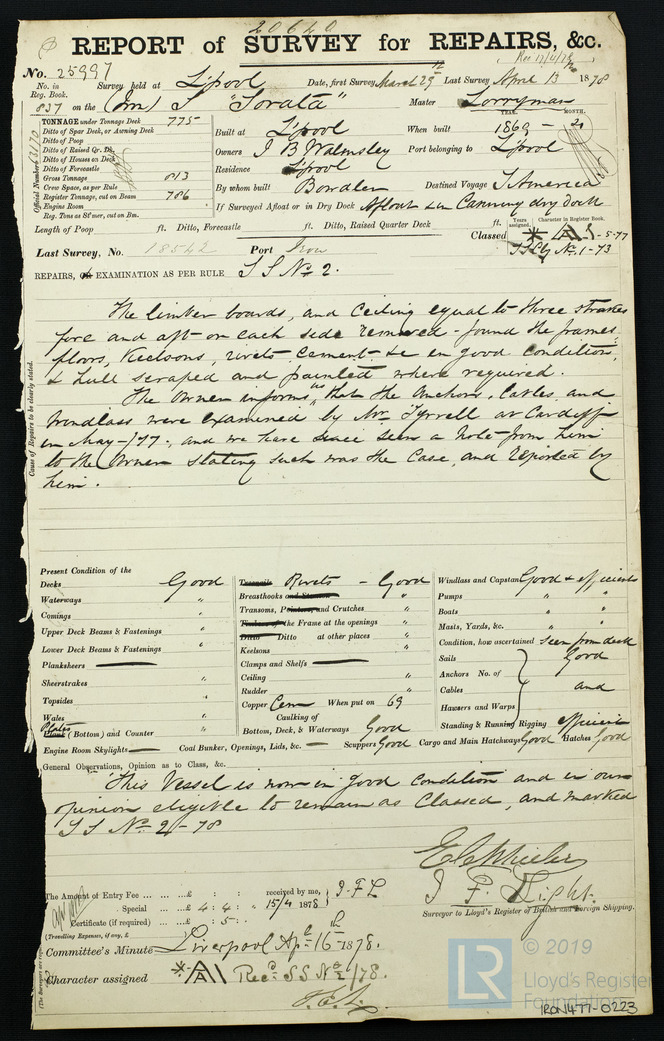 20640
REPORT of SURVEY for REPAIRS, &c.
No. 25997
Survey held at L'pool Date, first Survey March 29th Last Survey April 13 1878
No. in Reg. Book.
837 on the (Irn) S "Sorata" Master Lorryman
TONNAGE under Tonnage Deck 775
Ditto of Spar Deck, or Awning Deck
Ditto of Poop
Ditto of Raised Qr. Dk.
Ditto of Houses on Deck
Ditto of Forecastle
Gross Tonnage 813
Crew Space, as per Rule
Register Tonnage, cut on Beam 786
Engine Room
Reg. Tons as St'mer, cut on Bm.
Official Number
Built at L'pool When built YEAR. 1869 MONTH. 2
Owners J B Walmsley Port belonging to L'pool
Residence L'pool
By whom built Bowdler Destined Voyage S America
If Surveyed Afloat or in Dry Dock Afloat & in Canning dry dock
Length of Poop ft. Ditto, Forecastle ft. Ditto, Raised Quarter Deck ft.
Years assigned. Character in Register Book.
Classed A 1 - 5-77
No. 1-73
Last Survey, No. 18542 Port
REPAIRS, OR EXAMINATION AS PER RULE S S No 2.
The limber boards, and Ceiling equal to three strakes
fore and aft on each side removed - found the frames
floors, Keelsons, rivets cement &c in good condition,
& hull scraped and painted where required.
The Owner informs us that the Anchors, Cables, and
Windlass were examined by Mr Tyrrell at Cardiff
in May -/77, and we have since seen a Note from him
to the Owner stating such was the case, and reported by
him.
Cause of Repairs to be clearly stated.
Present Condition of the
Decks Good
Waterways "
Comings "
Upper Deck Beams & Fastenings "
Lower Deck Beams & Fastenings "
Planksheers
Sheerstrakes "
Topsides "
Wales "
Plates
Plank (Bottom) and Counter "
Engine Room Skylights
Treenails Rivets - Good
Breasthooks and Stemson "
Transoms, Pointers, and Crutches "
Timbers of the Frame at the openings "
Ditto Ditto at other places "
Keelsons "
Clamps and Shelfs
Ceiling "
Rudder "
Copper Cem When put on 69
Caulking of
Bottom, Deck, & Waterways Good
Windlass and Capstan Good & efficient
Pumps " "
Boats " "
Masts, Yards, &c. " "
Condition, how ascertained seen from deck
Sails Good
Anchors No. of
Cables and
Hawsers and Warps
Standing & Running Rigging efficient
Coal Bunker, Openings, Lids, &c. Scuppers Good Cargo and Main Hatchways Good Hatches Good
General Observations, Opinion as to Class, &c.
This Vessel is now in good condition and in our
opinion eligible to remain as Classed, and marked
S S No 2 - 78
The Amount of Entry Fee ... ... £ : : received by me,
Special ... ... £ 4 : 4 : " 15/4 1878
Certificate (if required) ... £ : 5 :
(Travelling Expenses, if any, £
Surveyor to Lloyd's Register of British and Foreign Shipping.
Committee's Minute Liverpool Apl 16th 1878.
Character assigned A1 Recd. S S No 2/78.
LR
© 2019
Lloyd's Register
Foundation
IRON477-0223